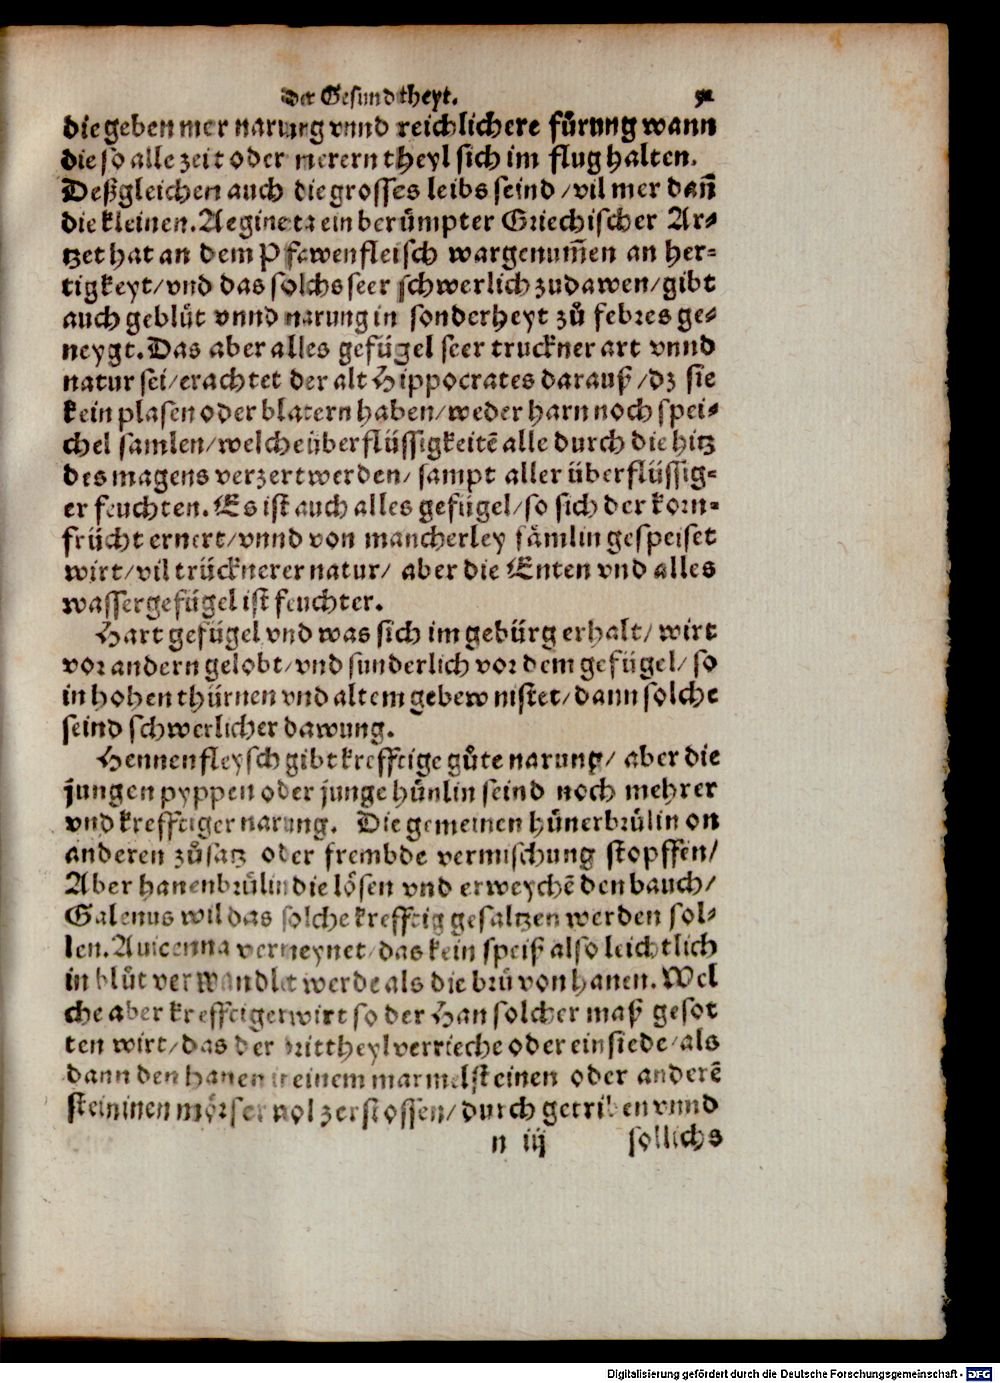 der Gesundtheyt. 51
die geben mer narung vnnd reichlichere fůrung wann
die so alle zeit oder merern theyl sich im flug halten.
Deßgleichen auch die grosses leibs seind/vil mer dañ
die kleinen. Aegineta ein berůmpter Griechischer Ar-
tzet hat an dem Pfawenfleisch wargenum̃en an her-
tigkeyt/vnd das solchs seer schwerlich zudawen/gibt
auch geblůt vnnd narung in sonderheyt zů febres ge-
neygt. Das aber alles gefügel seer truckner art vnnd
natur sei/erachtet der alt Hippocrates darauß/dz sie
kein plasen oder blatern haben/weder harn noch spei-
chel samlen/welche überflüssigkeitē alle durch die hitz
des magens verzert werden/ sampt aller überflüssig-
er feuchten. Es ist auch alles gefügel/so sich der korn-
frücht ernert/vnnd von mancherley sämlin gespeiset
wirt/vil trücknerer natur/ aber die Enten vnd alles
wassergefügel ist feuchter.
Hart gefügel vnd was sich im gebürg erhalt/ wirt
vor andern gelobt/vnd sunderlich vor dem gefügel/ so
in hohen thürnen vnd altem gebew nistet/dann solche
seind schwerlicher dawung.
Hennenfleysch gibt krefftige gůte narung/ aber die
jungen pyppen oder junge hůnlin seind noch mehrer
vnd krefftiger narung. Die gemeinen hůnerbrůlin on
anderen zůsatz oder frembde vermischung stopffen/
Aber hanenbrůlin die lösen vnd erweychē den bauch/
Galenus wil das solche krefftig gesaltzen werden sol-
len. Auicenna vermeynet/das kein speiß also leichtlich
in blůt verwandlet werde als die brů von hanen. Wel
che aber krefftiger wirt so der Han solcher maß gesot
ten wirt/das der drittheyl verrieche oder einsiede/als
dann den hanen in einem marmelsteinen oder anderē
steininen mörser wol zerstossen/durch getriben vnnd
n iij sollichs
Digitalisierung gefördert durch die Deutsche Forschungsgemeinschaft - DFG